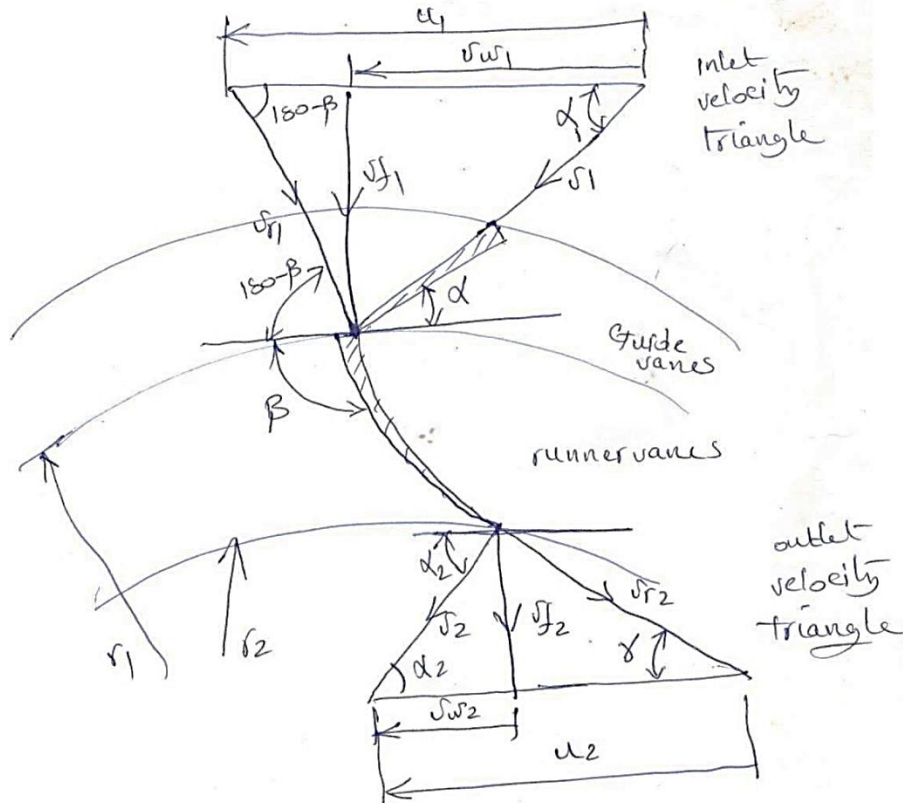 u1
vw1
inlet
velocity
triangle
180-β
α1
vf1
v1
vr1
180-β
α
Guide
vanes
β
runner vanes
outlet
velocity
triangle
α2
vr2
v2
vf2
r1
r2
α2
γ
vw2
u2